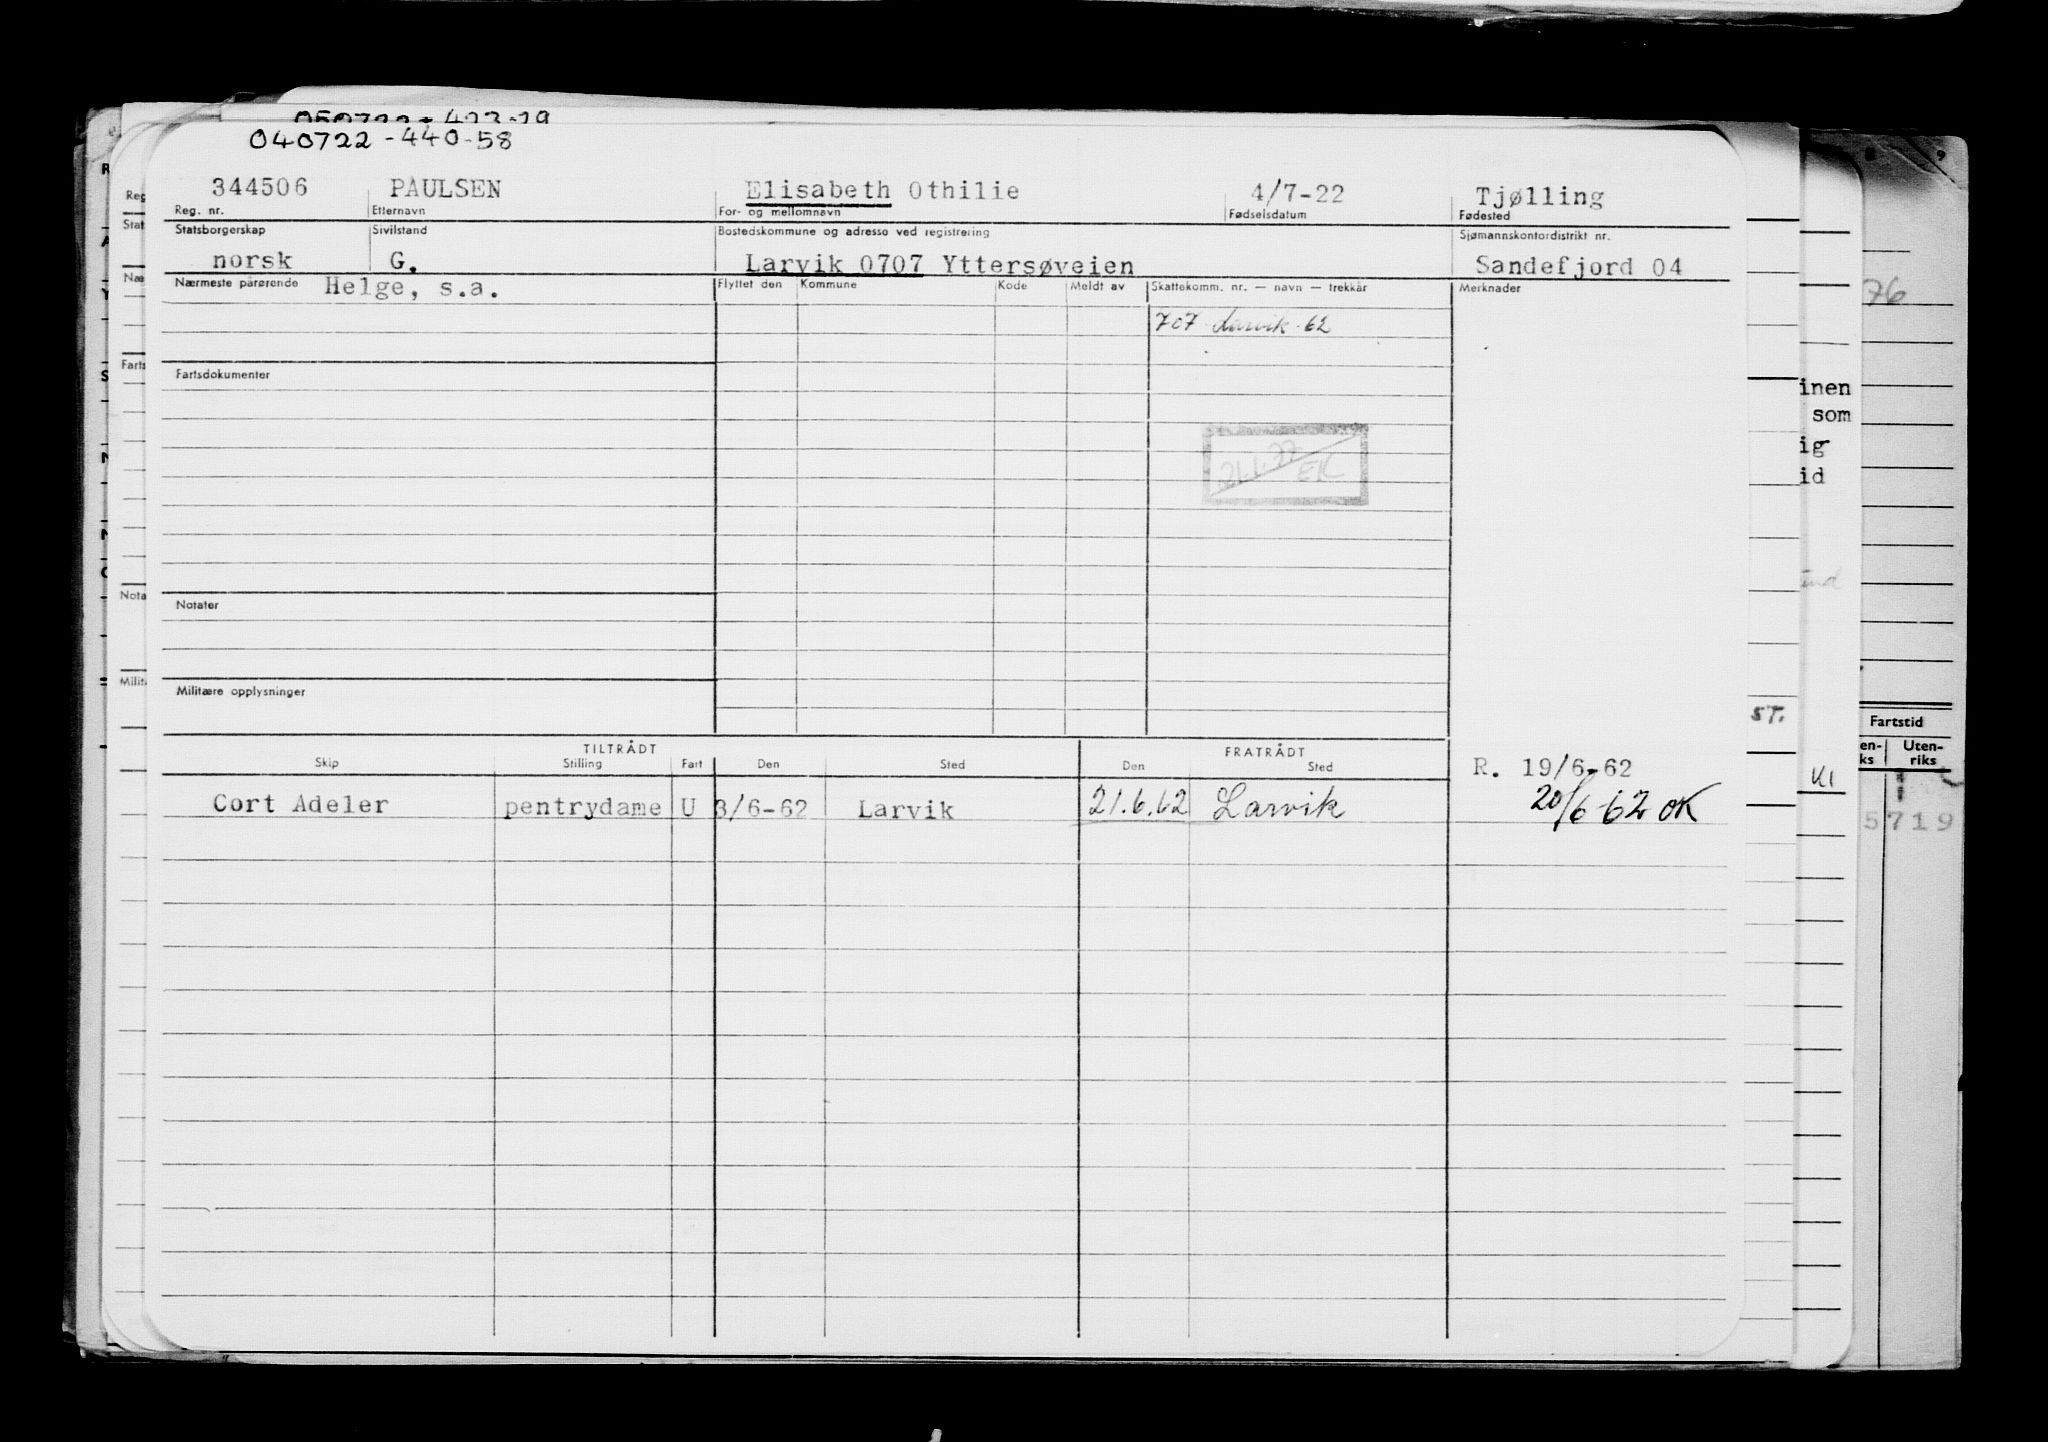 040722-440-58
344506 PAULSEN Elisabeth Othilie 4/7-22 Tjølling
Reg. nr. Etternavn For- og mellomnavn Fødselsdatum Fødested
Statsborgerskap Sivilstand Bostedskommune og adresse ved registrering Sjømannskontordistrikt nr.
norsk G. Larvik 0707 Yttersøveien Sandefjord 04
Nærmeste pårørende Helge, s.a. Flyttet den Kommune Kode Meldt av Skattekomm. nr. — navn — trekkår Merknader
707 Larvik 62
Fartsdokumenter
EK
Notater
Militære opplysninger
TILTRÅDT FRATRÅDT
Skip Stilling Fart Den Sted Den Sted
R. 19/6-62
Cort Adeler pentrydame U 3/6-62 Larvik 21.6.62 Larvik 20/6 62 OK
76
inen
som
ig
id
ST.
Fartstid
Uten-
riks
KI
5719